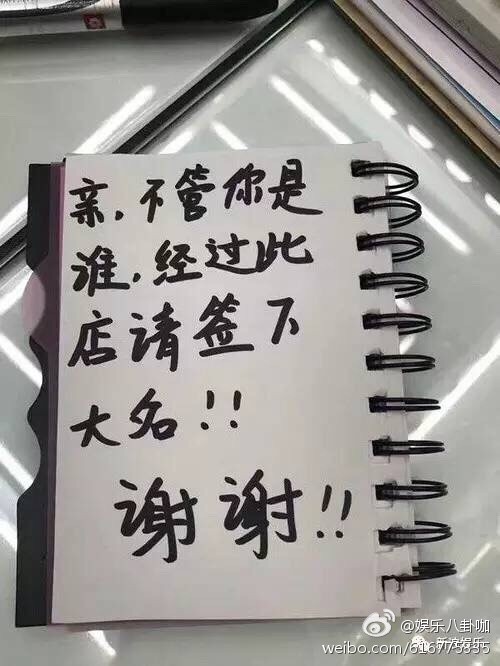 亲,不管你是
谁,经过此
店请签下
大名!!
谢谢!!
@娱乐八卦咖
新流娱乐
weibo.com/616775335